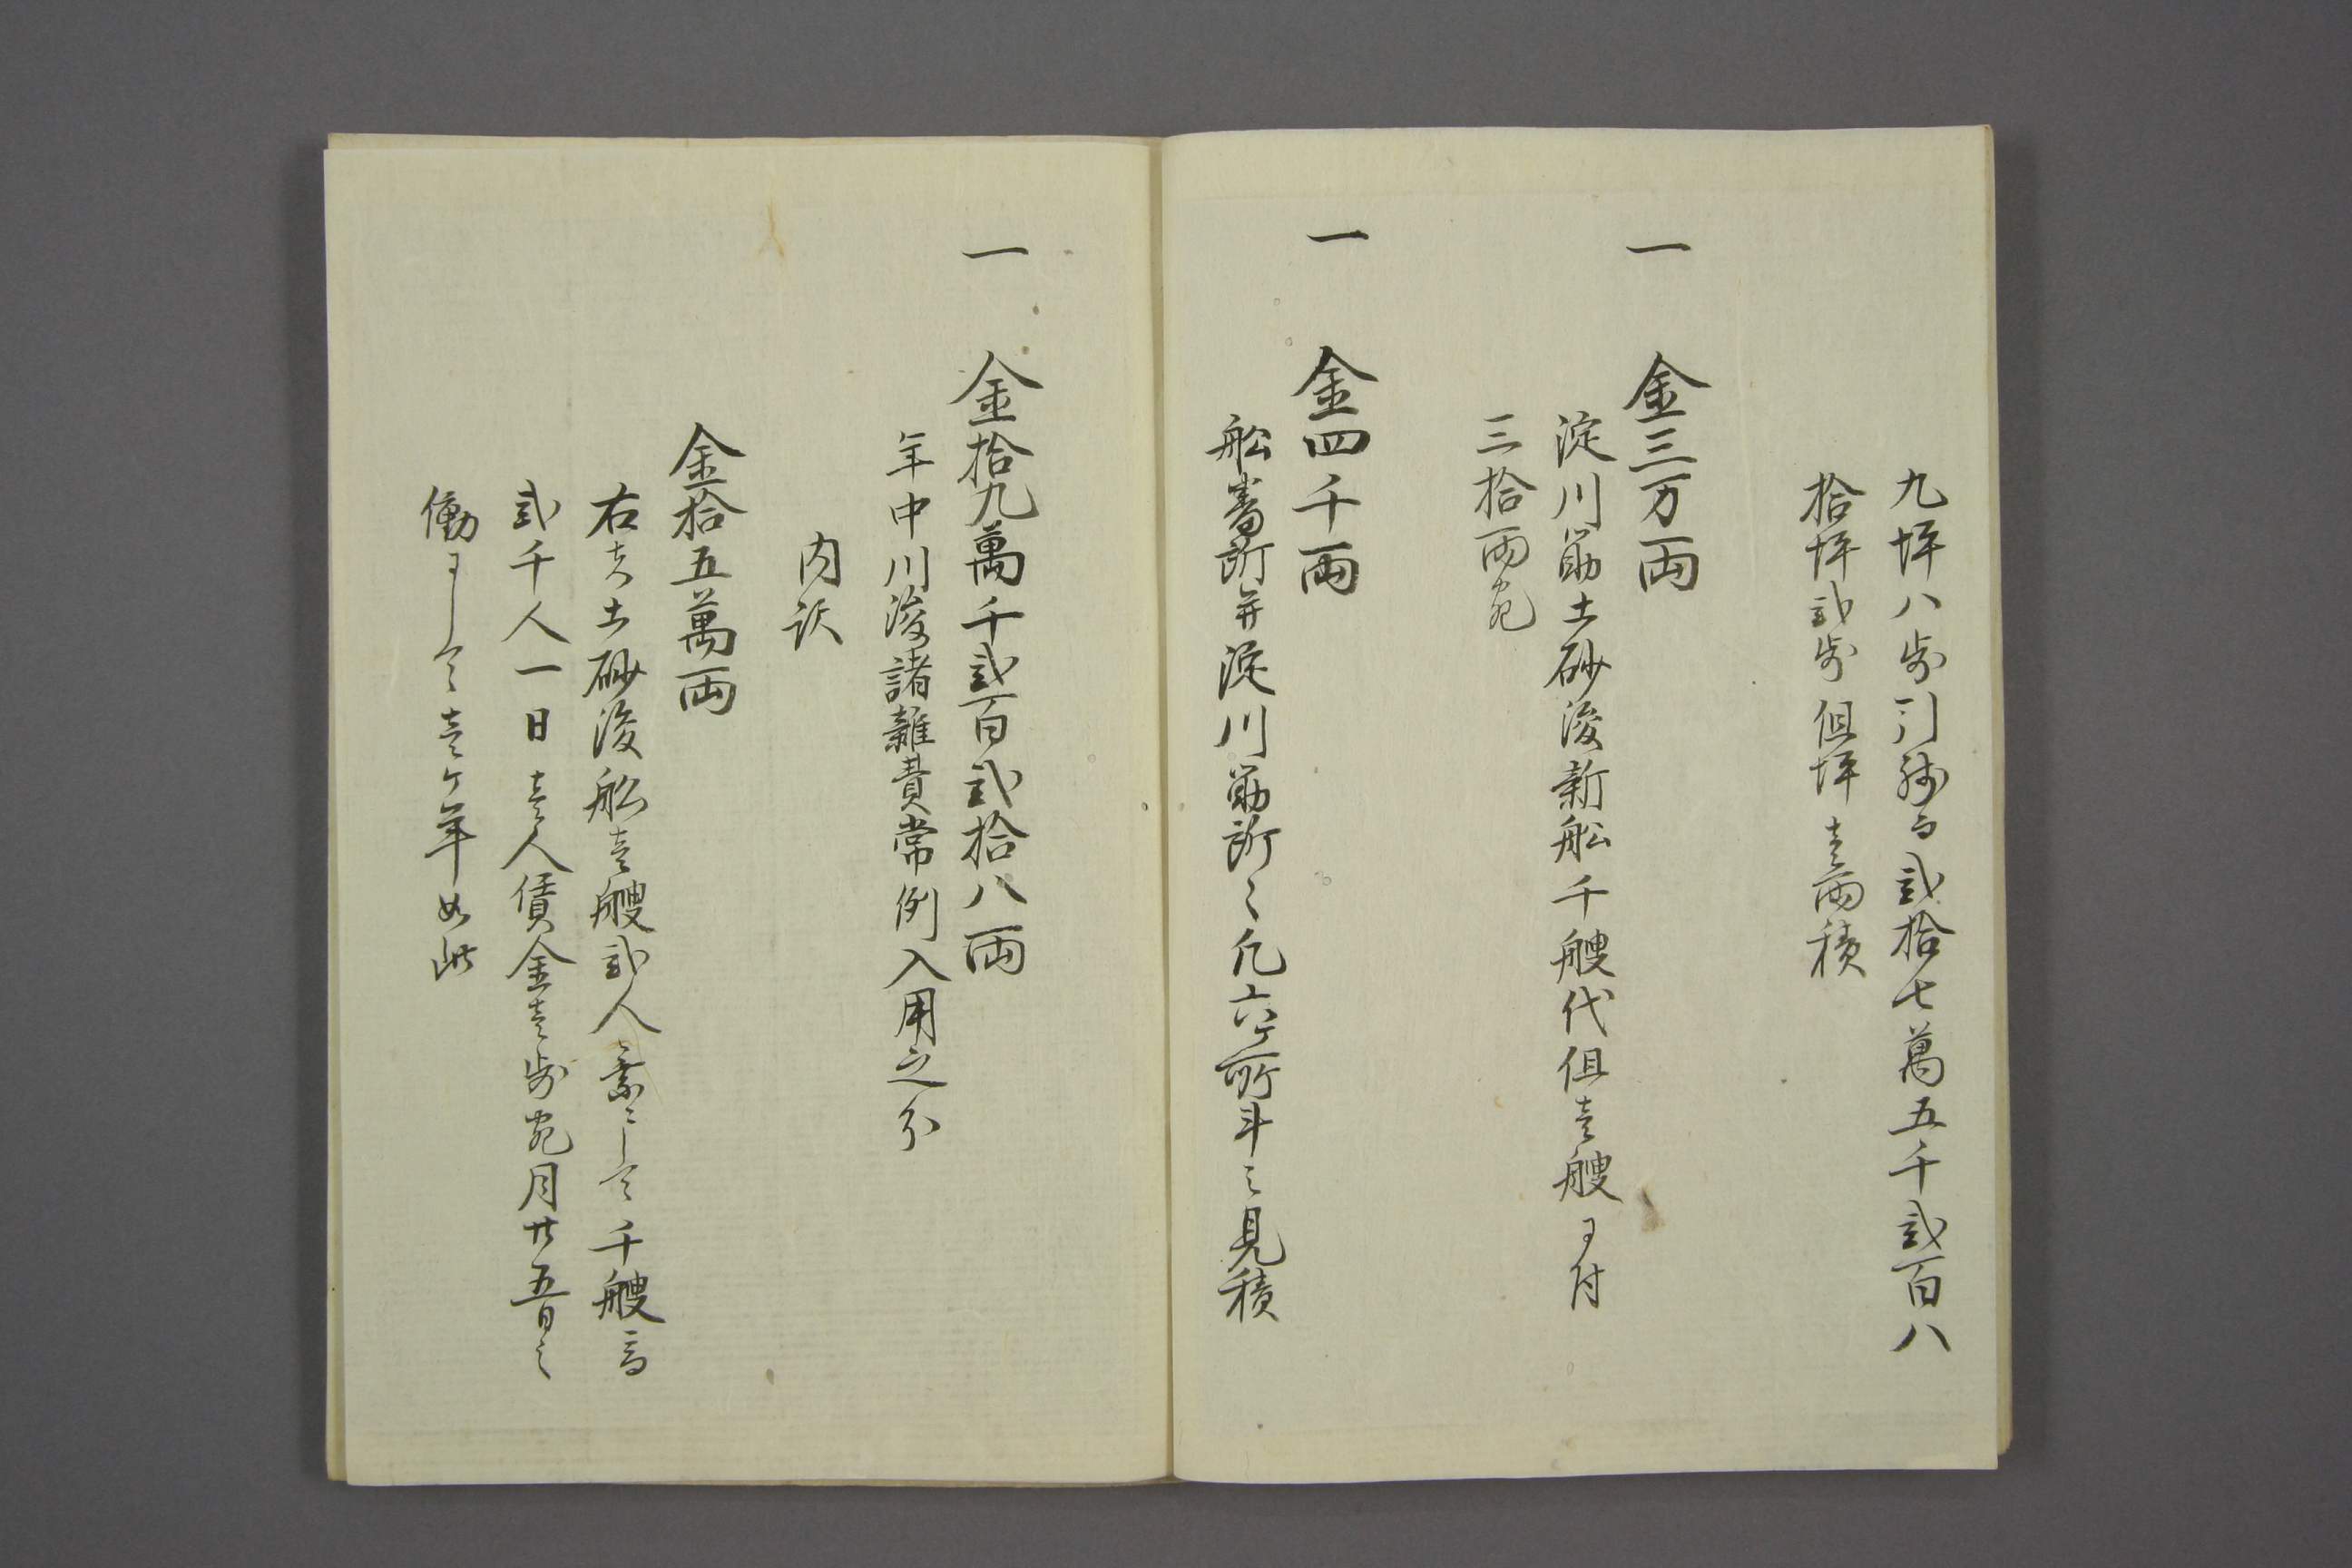 九坪八歩引残而弐拾七萬五千弐百八
拾坪弐歩但坪壱両積
一 金三万両
淀川筋土砂浚新舩千艘代但壱艘ニ付
三拾両宛
一 金四千両
舩番所并淀川筋所々凡六ヶ所斗之見積
一 金拾九萬千弐百弐拾八両
年中川浚諸雑費常例入用之分
内訳
金拾五萬両
右者土砂浚舩壱艘弐人乗ニして千艘而
弐千人一日壱人賃金壱歩宛月廿五日之
働ニして壱ヶ年如此